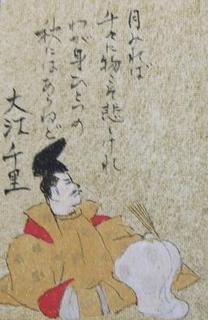 月みれば
千々に物こそ悲しけれ
わが身ひとつの
秋にはあらねど
大江千里